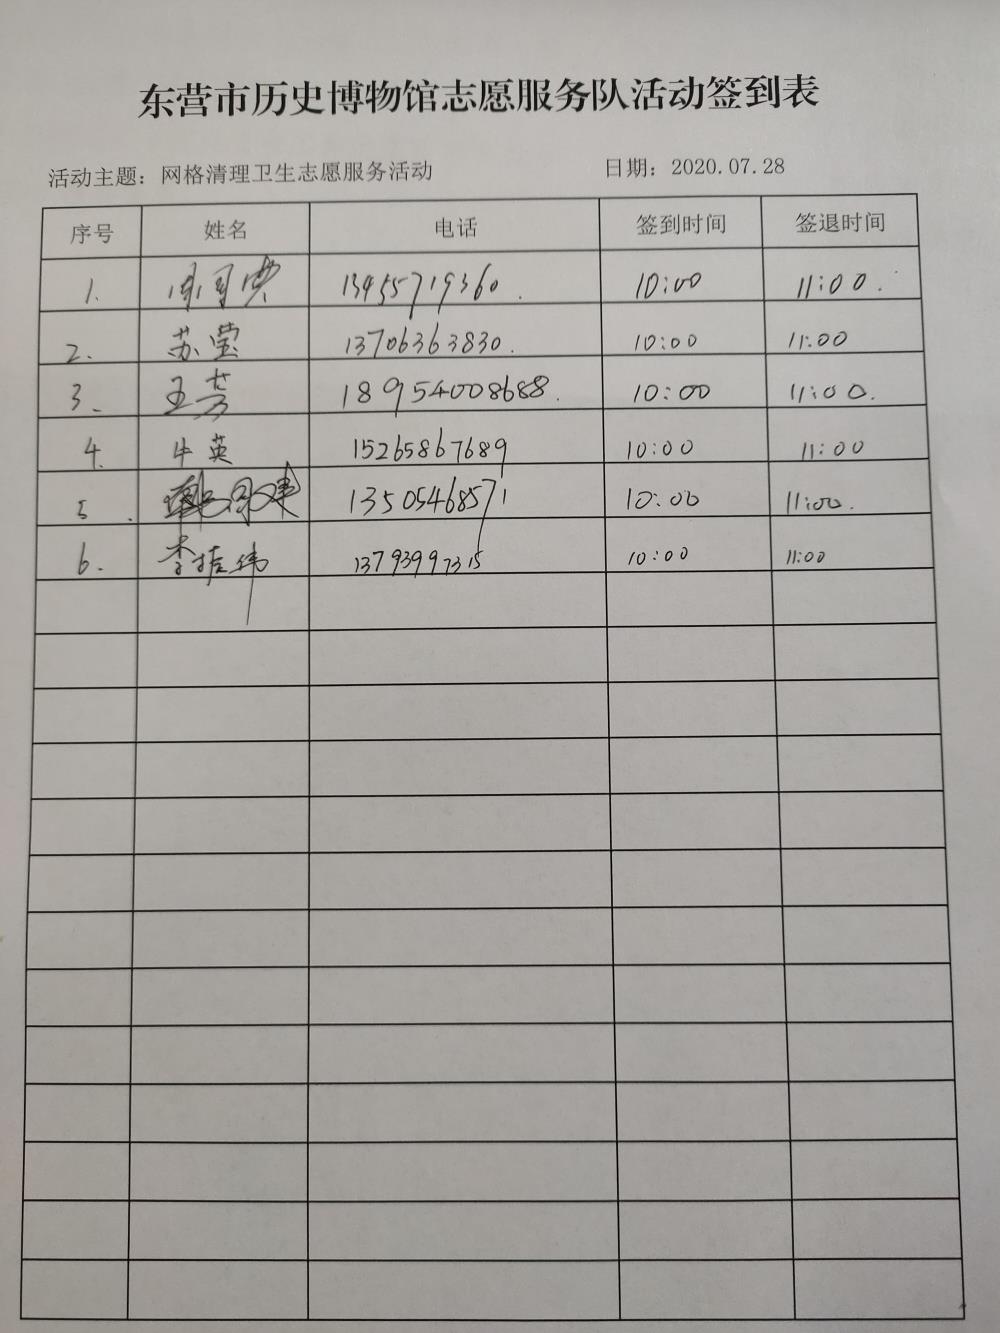 东营市历史博物馆志愿服务队活动签到表
活动主题：网格清理卫生志愿服务活动 日期：2020.07.28
序号 姓名 电话 签到时间 签退时间
1. 13455719360. 10:00 11:00.
2. 苏莹 13706363830. 10:00 11:00
3. 王芳 18954008688. 10:00 11:00.
4. 牛英 15265867689 10:00 11:00
5. 13505468571 10:00 11:00.
6. 李振伟 13793997315 10:00 11:00